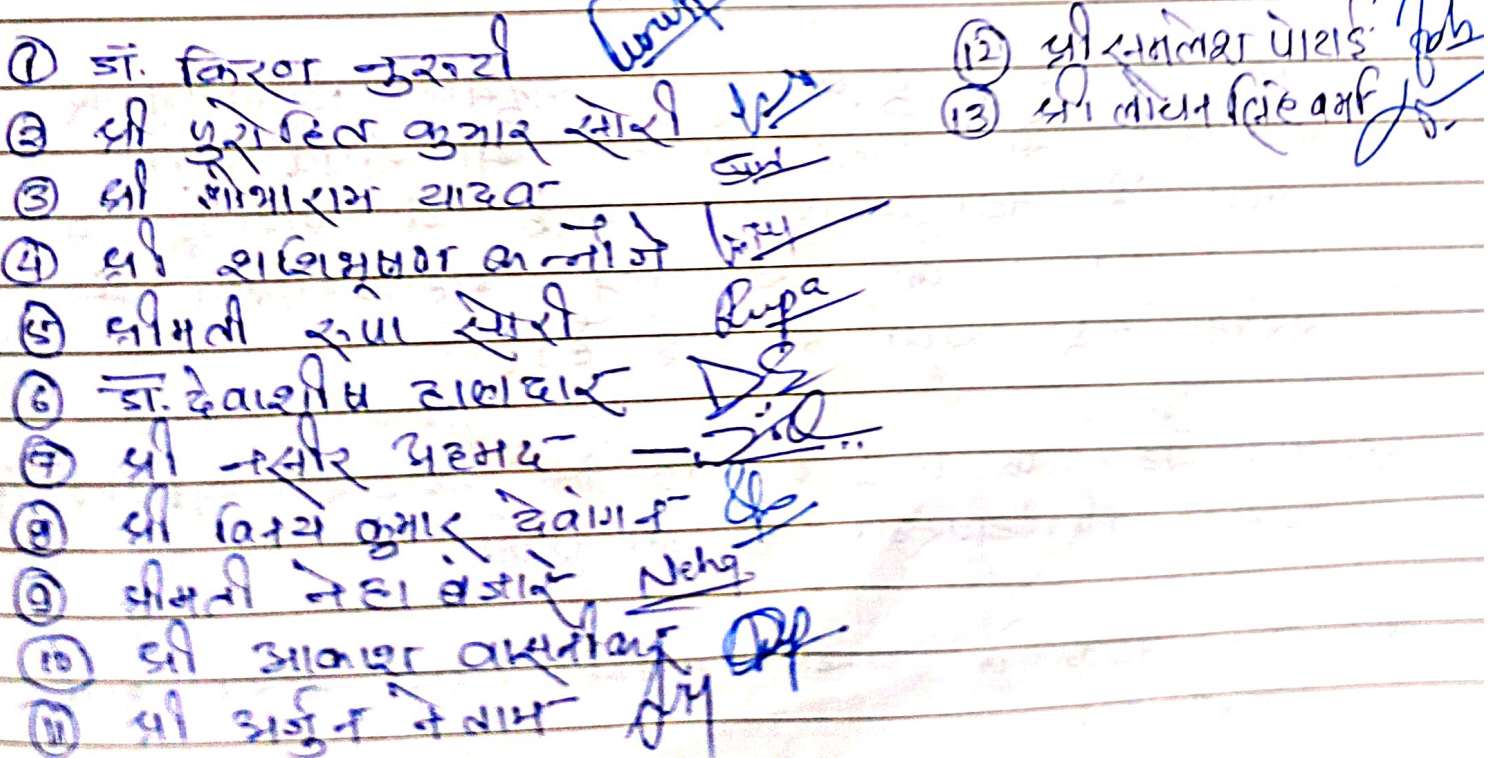 ① डॉ. किरण नुरुटी
② श्री पुरोहित कुमार सोरी
③ श्री सोभाराम यादव
④ श्री शशिभूषण कन्नौजे
⑤ श्रीमती रूपा सोरी Rupa
⑥ डा. देवाशीष हालदार
⑦ श्री नसीर अहमद
⑧ श्री विनय कुमार देवांगन
⑨ श्रीमती नेहा बंजारे Neha
⑩ श्री आकाश वासनीकर
⑪ श्री अर्जुन नेताम
⑫ श्री समलेश पोटाई
⑬ श्री लोचन सिंह वर्मा